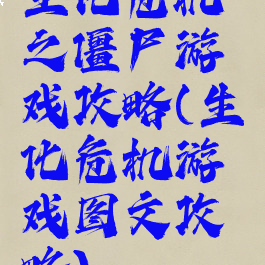 生化危机
之僵尸游
戏攻略(生
化危机游
戏图文攻
略)